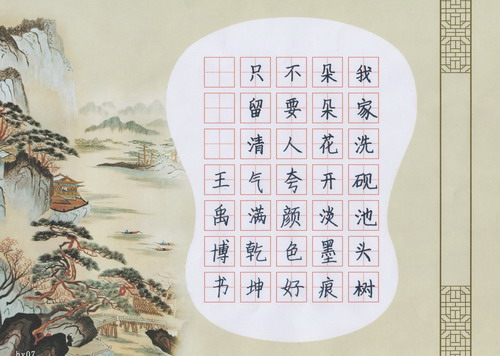 我家洗砚池头树
朵朵花开淡墨痕
不要人夸颜色好
只留清气满乾坤
王禹博书
hy07